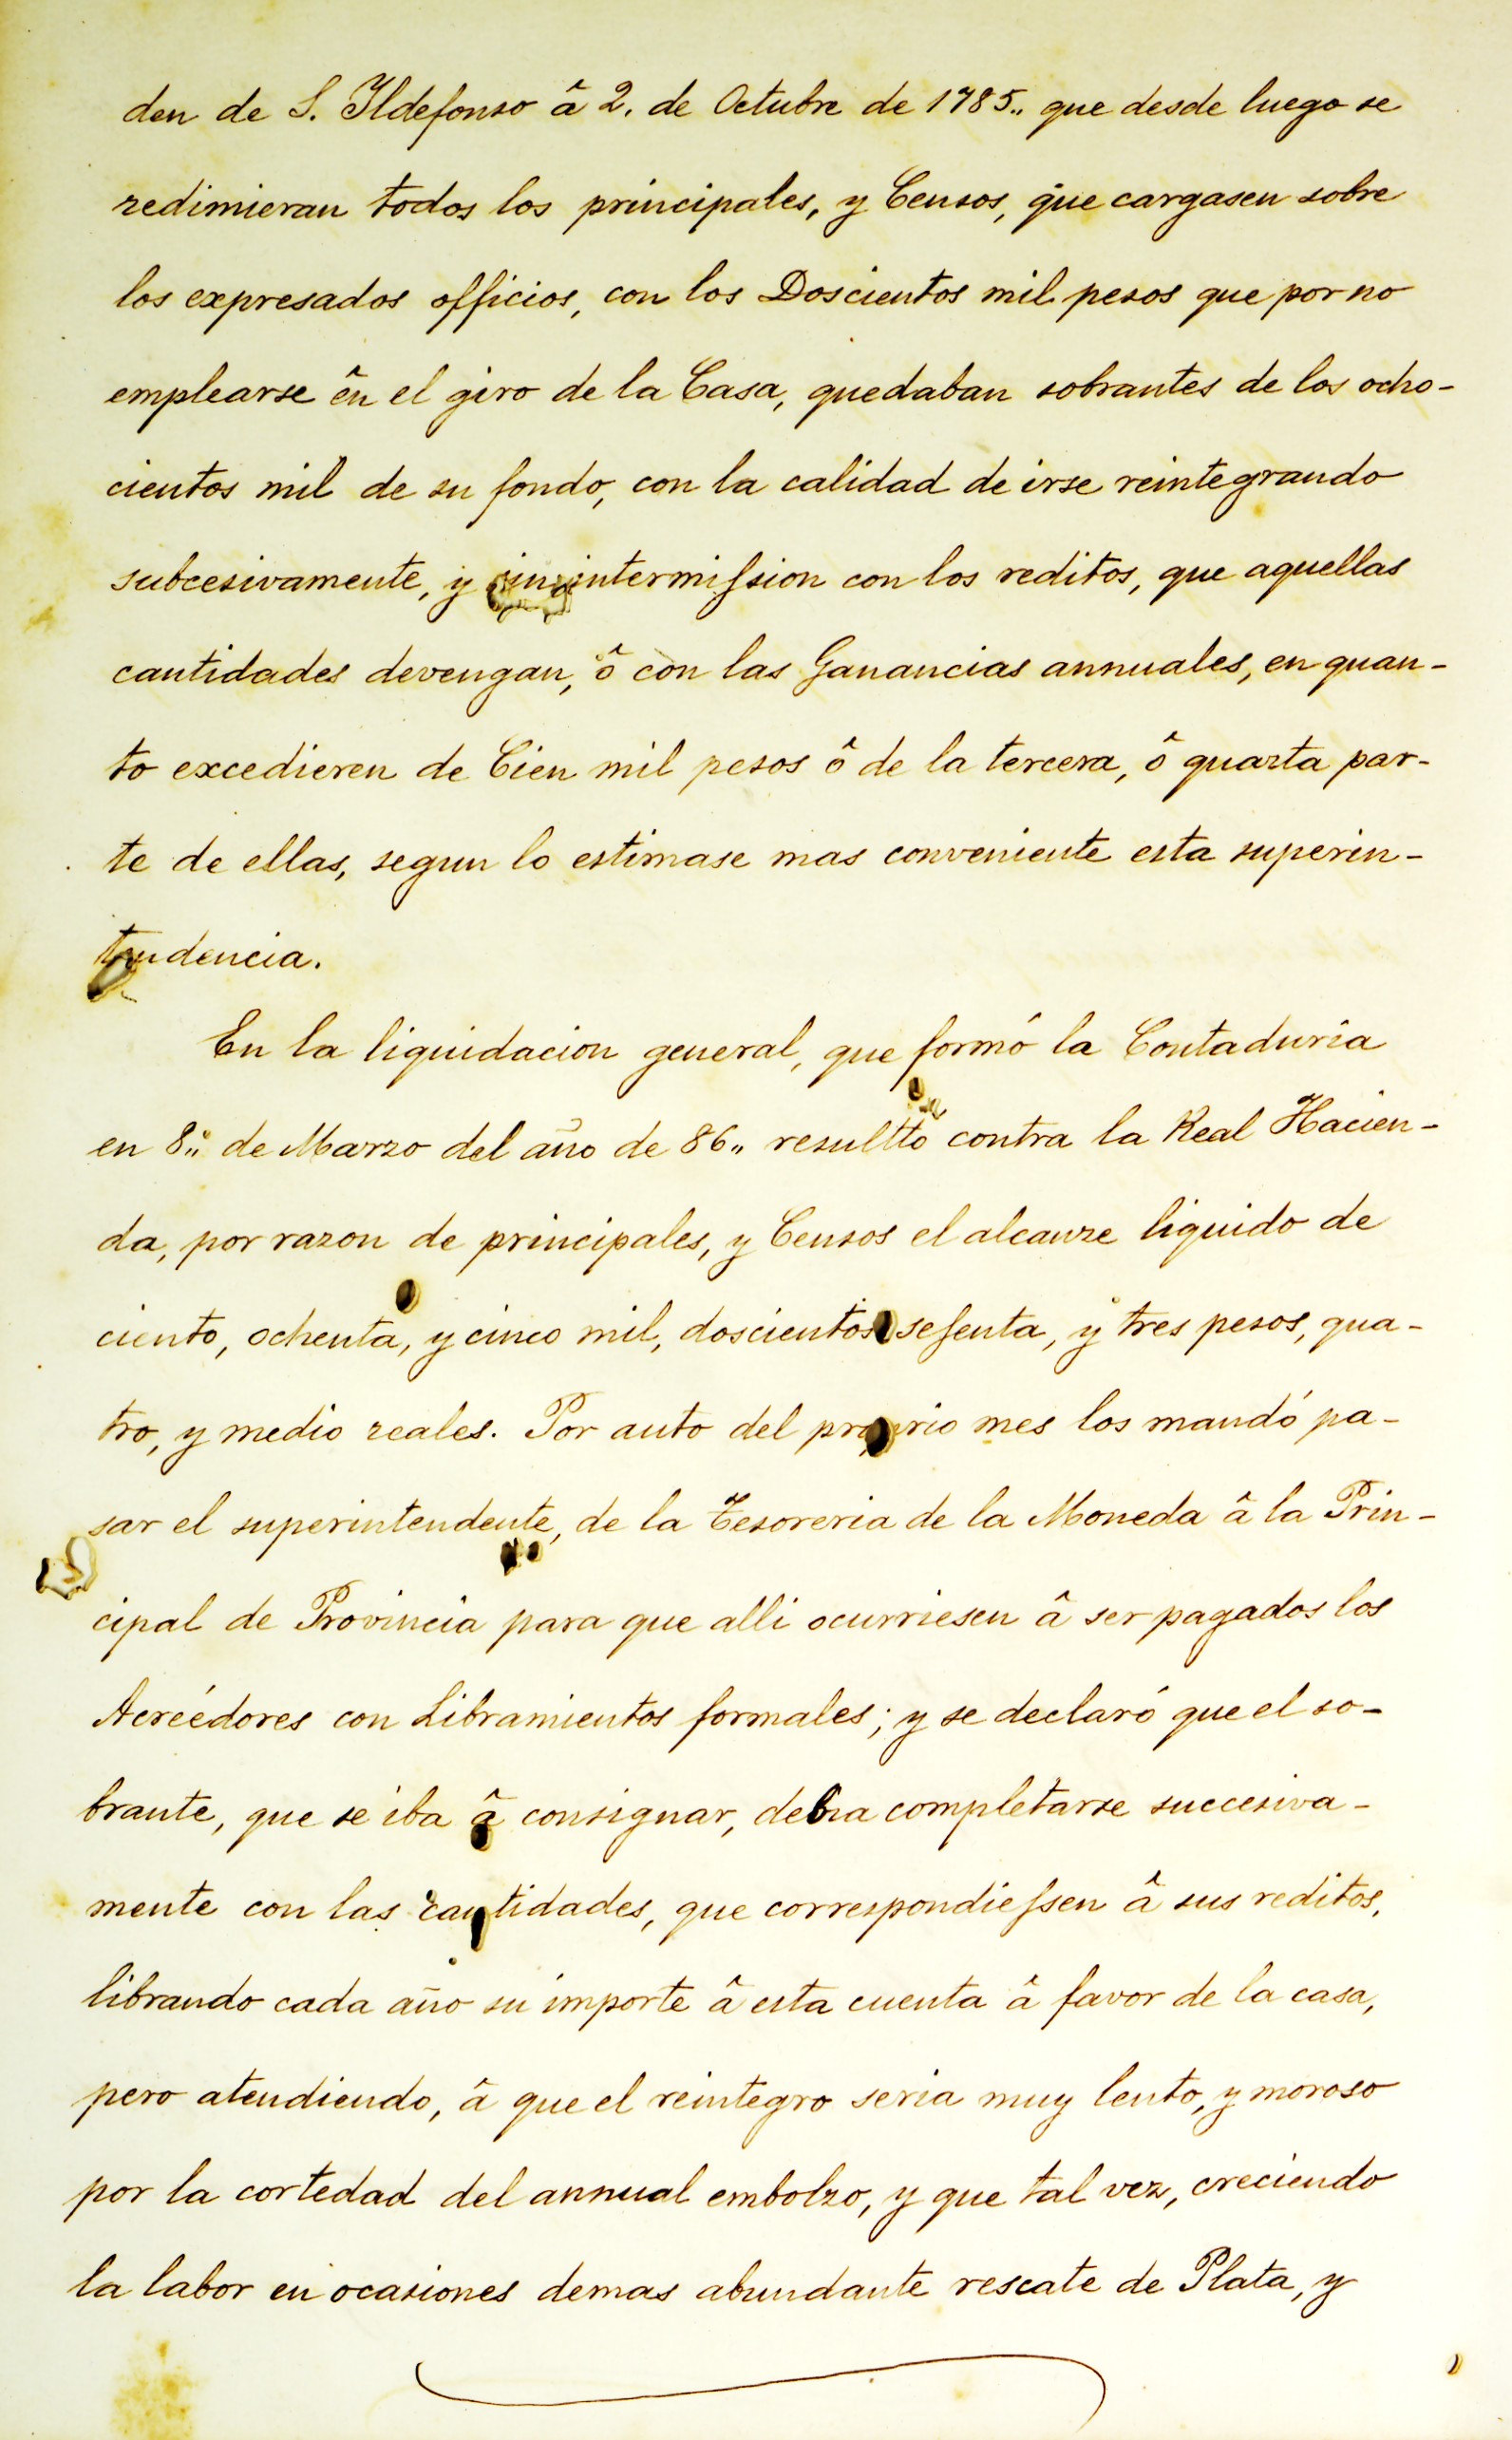 den de S. Ildefonso â 2. de Octubre de 1785.. que desde luego se
redimieran todos los principales, y Censos, que cargasen sobre
los expresados officios, con los Doscientos mil pesos que por no
emplearse ên el giro de la Casa, quedaban sobrantes de los ocho-
cientos mil de su fondo, con la calidad de irse reintegrando
subcesivamente, y sin intermission con los reditos, que aquellas
cantidades devengan, ô con las Ganancias annuales, en quan-
to excedieren de Cien mil pesos ô de la tercera, ô quarta par-
te de ellas, segun lo estimase mas conveniente esta superin-
tendencia.
En la liquidacion general, que formó la Contaduria
en 8.. de Marzo del año de 86.. resultto contra la Real Hacien-
da, por razon de principales, y Censos el alcanze liquido de
ciento, ochenta, y cinco mil, doscientos sesenta, y tres pesos, qua-
tro, y medio reales. Por auto del proprio mes los mandó pa-
sar el superintendente, de la Tesoreria de la Moneda â la Prin-
cipal de Provincia para que alli ocurriesen â ser pagados los
Acreédores con Libramientos formales; y se declaró que el so-
brante, que se iba â consignar, debia completarse succesiva-
mente con las cantidades, que correspondiessen â sus reditos,
librando cada año su importe â esta cuenta â favor de la casa,
pero atendiendo, â que el reintegro seria muy lento, y moroso
por la cortedad del annual embolzo, y que tal vez, creciendo
la labor en ocasiones demas abundante rescate de Plata, y